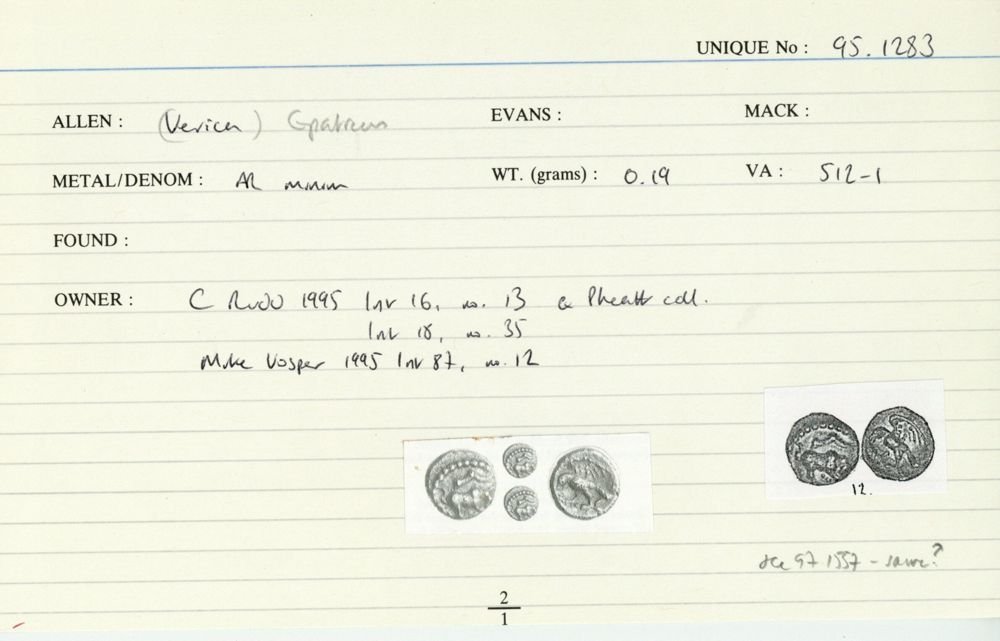 UNIQUE No : 95.1283
ALLEN : (Verica) Epaticcus EVANS : MACK :
METAL/DENOM : AR minim WT. (grams) : 0.19 VA : 512-1
FOUND :
OWNER : C Rudd 1995 Inv 16, no. 13 a Pheatt coll.
Inv 18, no. 35
Mike Vosper 1995 Inv 87, no. 12
12.
see 97 1557 - same?
2
1